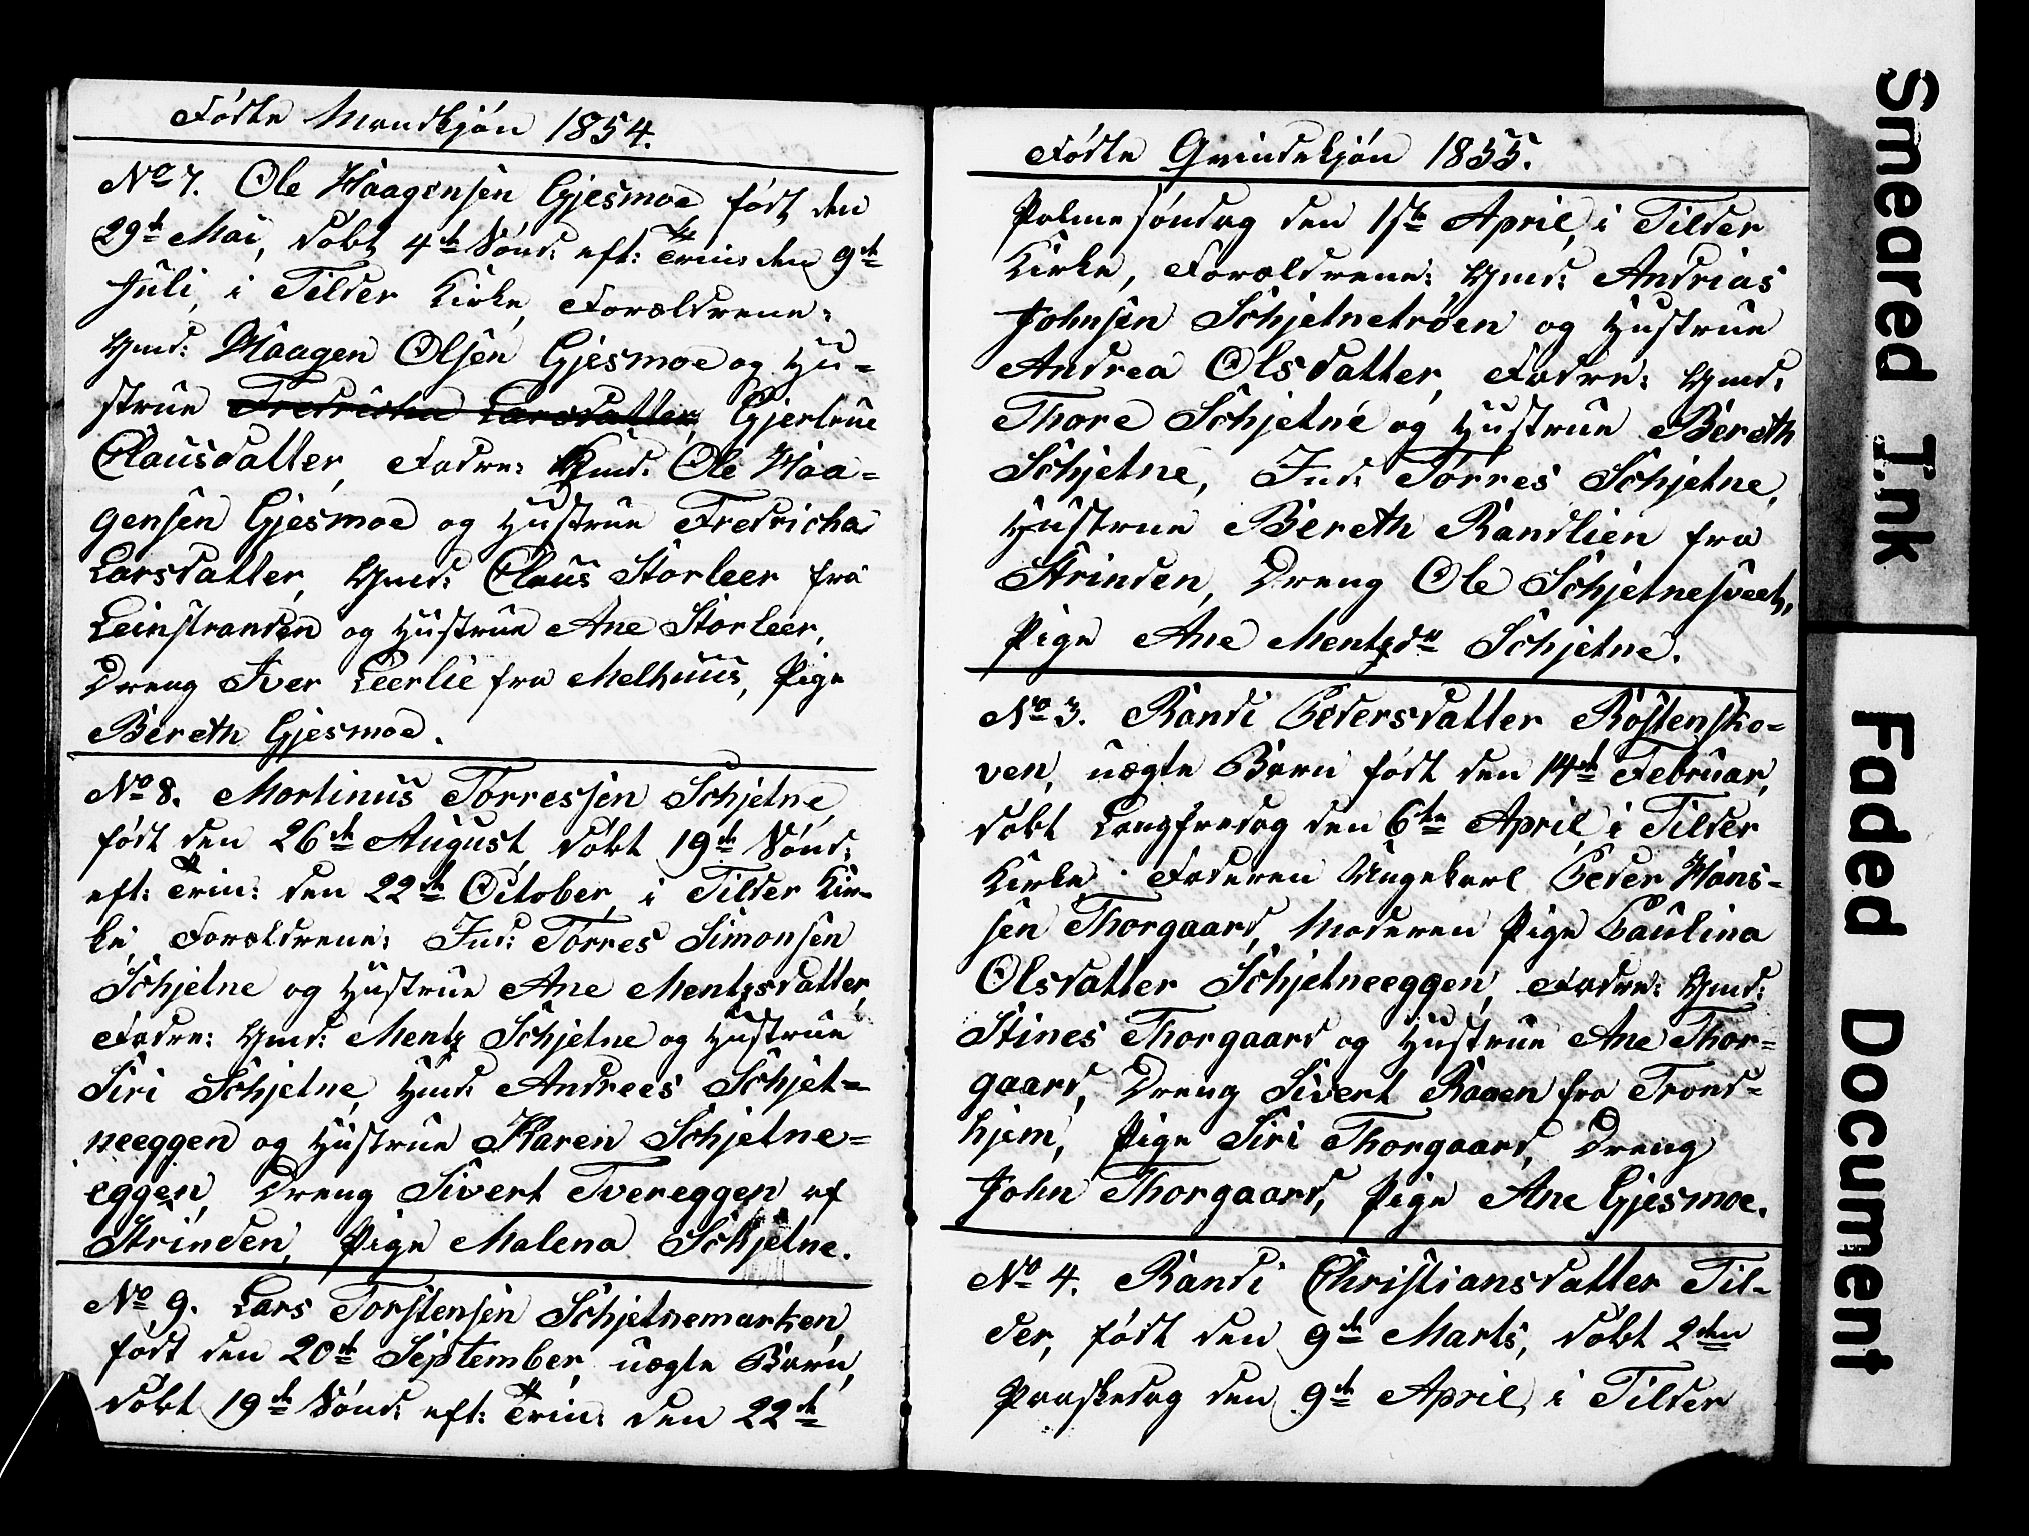 Fødte Mandkjøn 1854.
No 7. Ole Haagensen Gjesmoe født den
29de Mai, døbt 4de Sønd: eft: Trin: den 9de
Juli, i Tilder Kirke, Forældrene:
Gmd: Haagen Olsen Gjesmoe og Hu-
strue Fredricha Larsdatter, Gjertrue
Clausdatter, Fadre: Gmd: Ole Haa-
gensen Gjesmoe og Hustrue Fredricha
Larsdatter, Gmd: Claus Storleer fra
Leinstranden og Hustrue Ane Storleer,
Dreng Iver Leerlie fra Melhuus, Pige
Bereth Gjesmoe.
No 8. Martinus Torressen Schjetne,
født den 26de August, døbt 19de Sønd:
eft: Trin: den 22de October, i Tilder Kir-
ke, Forældrene: Ind: Torres Simonsen
Schjetne og Hustrue Ane Mentzsdatter,
Fadre: Gmd: Mentz Schjetne og Hustrue
Siri Schjetne, Hmd: Andrees Schjet-
neeggen og Hustrue Karen Schjetne-
eggen, Dreng Sivert Tvereggen af
Strinden, Pige Malena Schjetne.
No 9. Lars Torstensen Schjetnemarken,
født den 20de September, uægte Barn,
døbt 19de Sønd: eft: Trin: den 22de
Fødte Qvindekjøn 1855.
Palmesøndag den 1ste April, i Tilder
Kirke, Forældrene: Gmd: Andrias
Johnsen Schjetnetrøen og Hustrue
Andrea Olsdatter, Fadre: Gmd:
Thore Schjetne og Hustrue Bereth
Schjetne, Ind: Torres Schjetne,
Hustrue Bereth Randlien fra
Strinden, Dreng Ole Schjetnesveet,
Pige Ane Mentzdr Schjetne.
No 3. Randi Pedersdatter Rostensko-
ven, uægte Barn født den 14de Februar,
døbt Langfredag den 6te April, i Tilder
Kirke. Faderen Ungekarl Peder Hans-
sen Thorgaard, Moderen Pige Paulina
Olsdatter Schjetneeggen, Fadre: Gmd:
Stines Thorgaard og Hustrue Ane Thor-
gaard, Dreng Sivert Raaen fra Trond-
hjem, Pige Siri Thorgaard, Dreng
John Thorgaard, Pige Ane Gjesmoe.
No 4. Randi Christiansdatter Til-
der, født den 9de Marts, døbt 2den
Paaskedag den 9de April, i Tilder
Smeared Ink
Faded Document